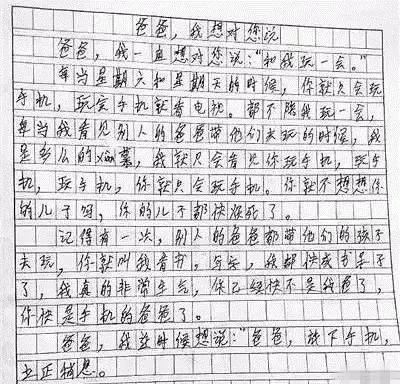 爸爸,我想对您说
爸爸,我一直想对您说:“和我玩一会。”
每当星期六和星期天的时候,你就只会玩
手机,玩完手机就看电视。都不陪我玩一会,
每当我看见别人的爸爸带他们去玩的时候,我
是多么的xian慕,我就只会看见你玩手机,玩手
机,玩手机,你就只会玩手机。你就不想想你
的儿子吗,你的儿子都快没死了。
记得有一次,别人的爸爸都带他们的孩子
去玩,你就叫我看书。写字,我都快成书呆子
了,我真的非常生气,你已经快不是我爸了,
你快是手机的爸爸了。
爸爸,我这时候想说:“爸爸,放下手机,